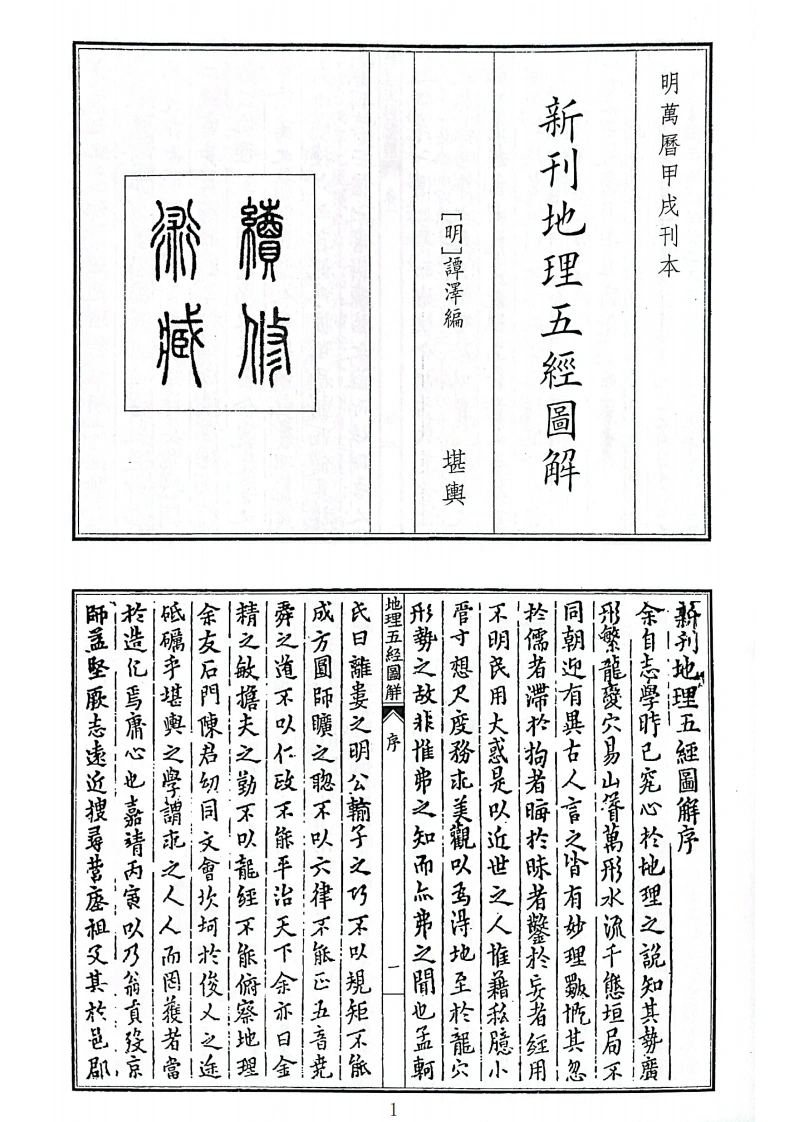 明萬曆甲戌刊本
新刊地理五經圖解
[明]譚澤編　堪輿
續修
術藏
新刊地理五經圖解序
余自志學時已究心於地理之說知其勢廣
形繁龍變穴易山有萬形水流千態垣局不
同朝迎有異古人言之皆有妙理艱慨其忽
於儒者滯於拘者晦於昧者鑿於妄者經用
不明民用大惑是以近世之人惟藉私臆小
管寸想尺度務求美觀以為得地至於龍穴
形勢之故非惟弗之知而亦弗之聞也孟軻
地理五經圖解　序　一
氏曰離婁之明公輸子之巧不以規矩不能
成方圓師曠之聰不以六律不能正五音堯
舜之道不以仁政不能平治天下余亦曰金
精之敏擔夫之勤不以龍經不能俯察地理
余友石門陳君幼同文會坎坷於俊乂之途
砥礪乎堪輿之學謂求之人人而罔獲者當
於造化焉庸心也嘉靖丙寅以乃翁貢歿京
師益堅厥志遠近搜尋營塵祖父其於邑郡
1